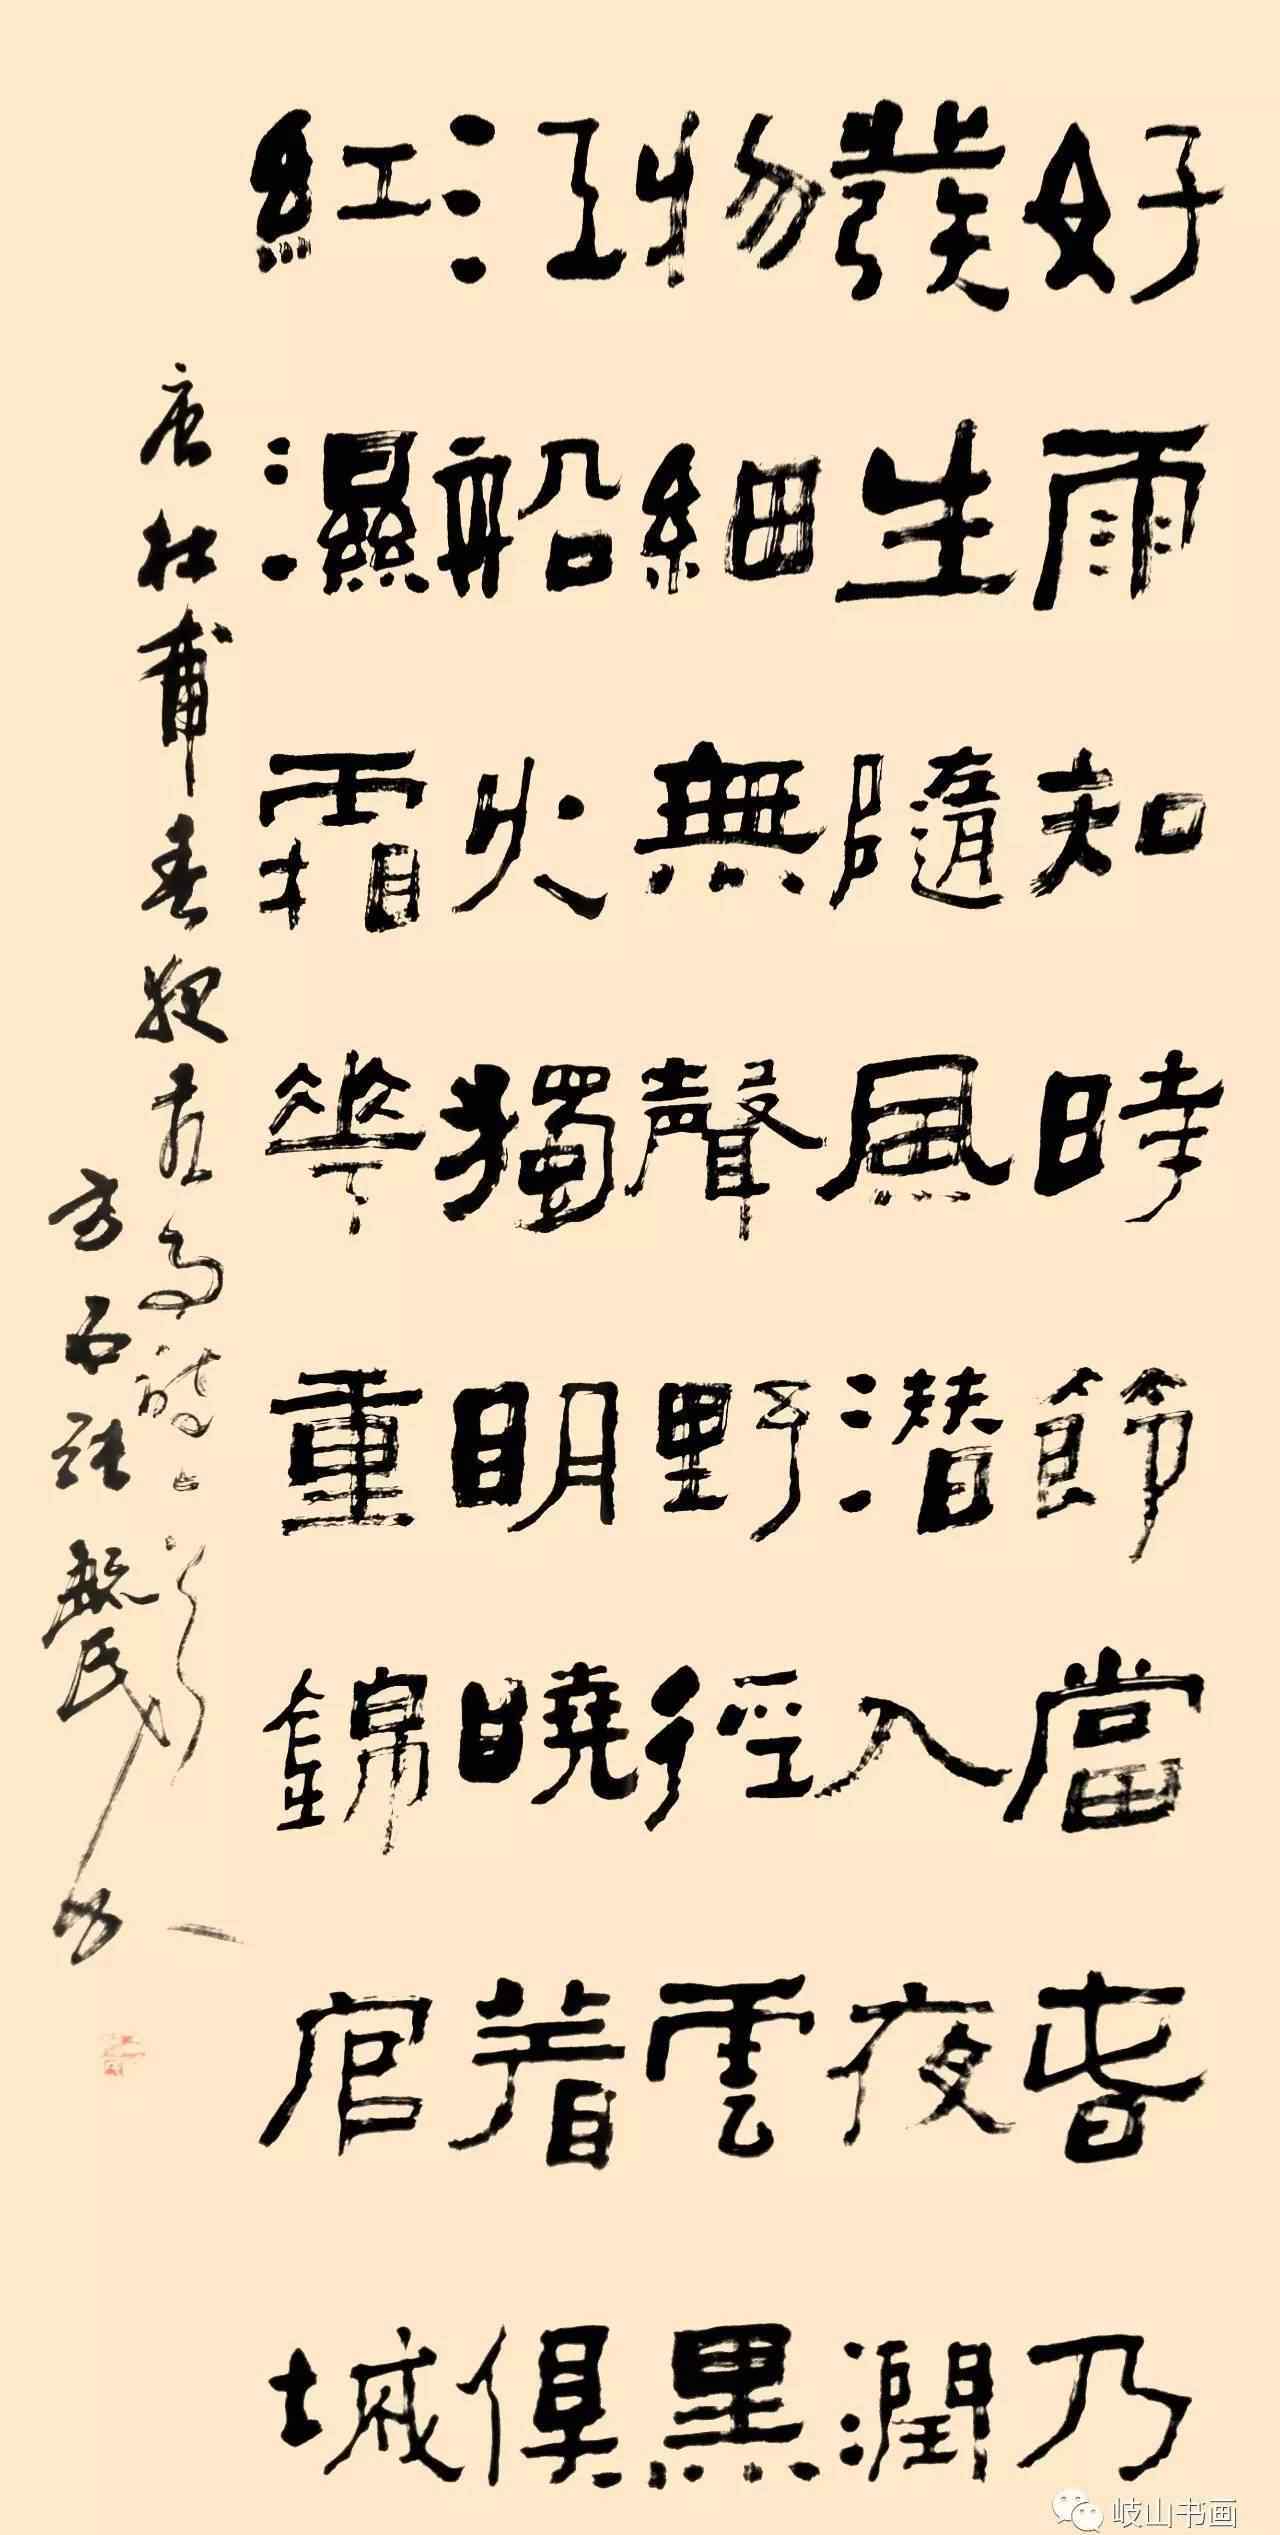 好雨知時節當旾乃
發生隨風潛入夜潤
物細無聲野徑雲黑
江船火獨明曉着俱
紅濕霜華重錦官城
唐杜甫春夜喜雨詩
方石張毓民書
岐山书画